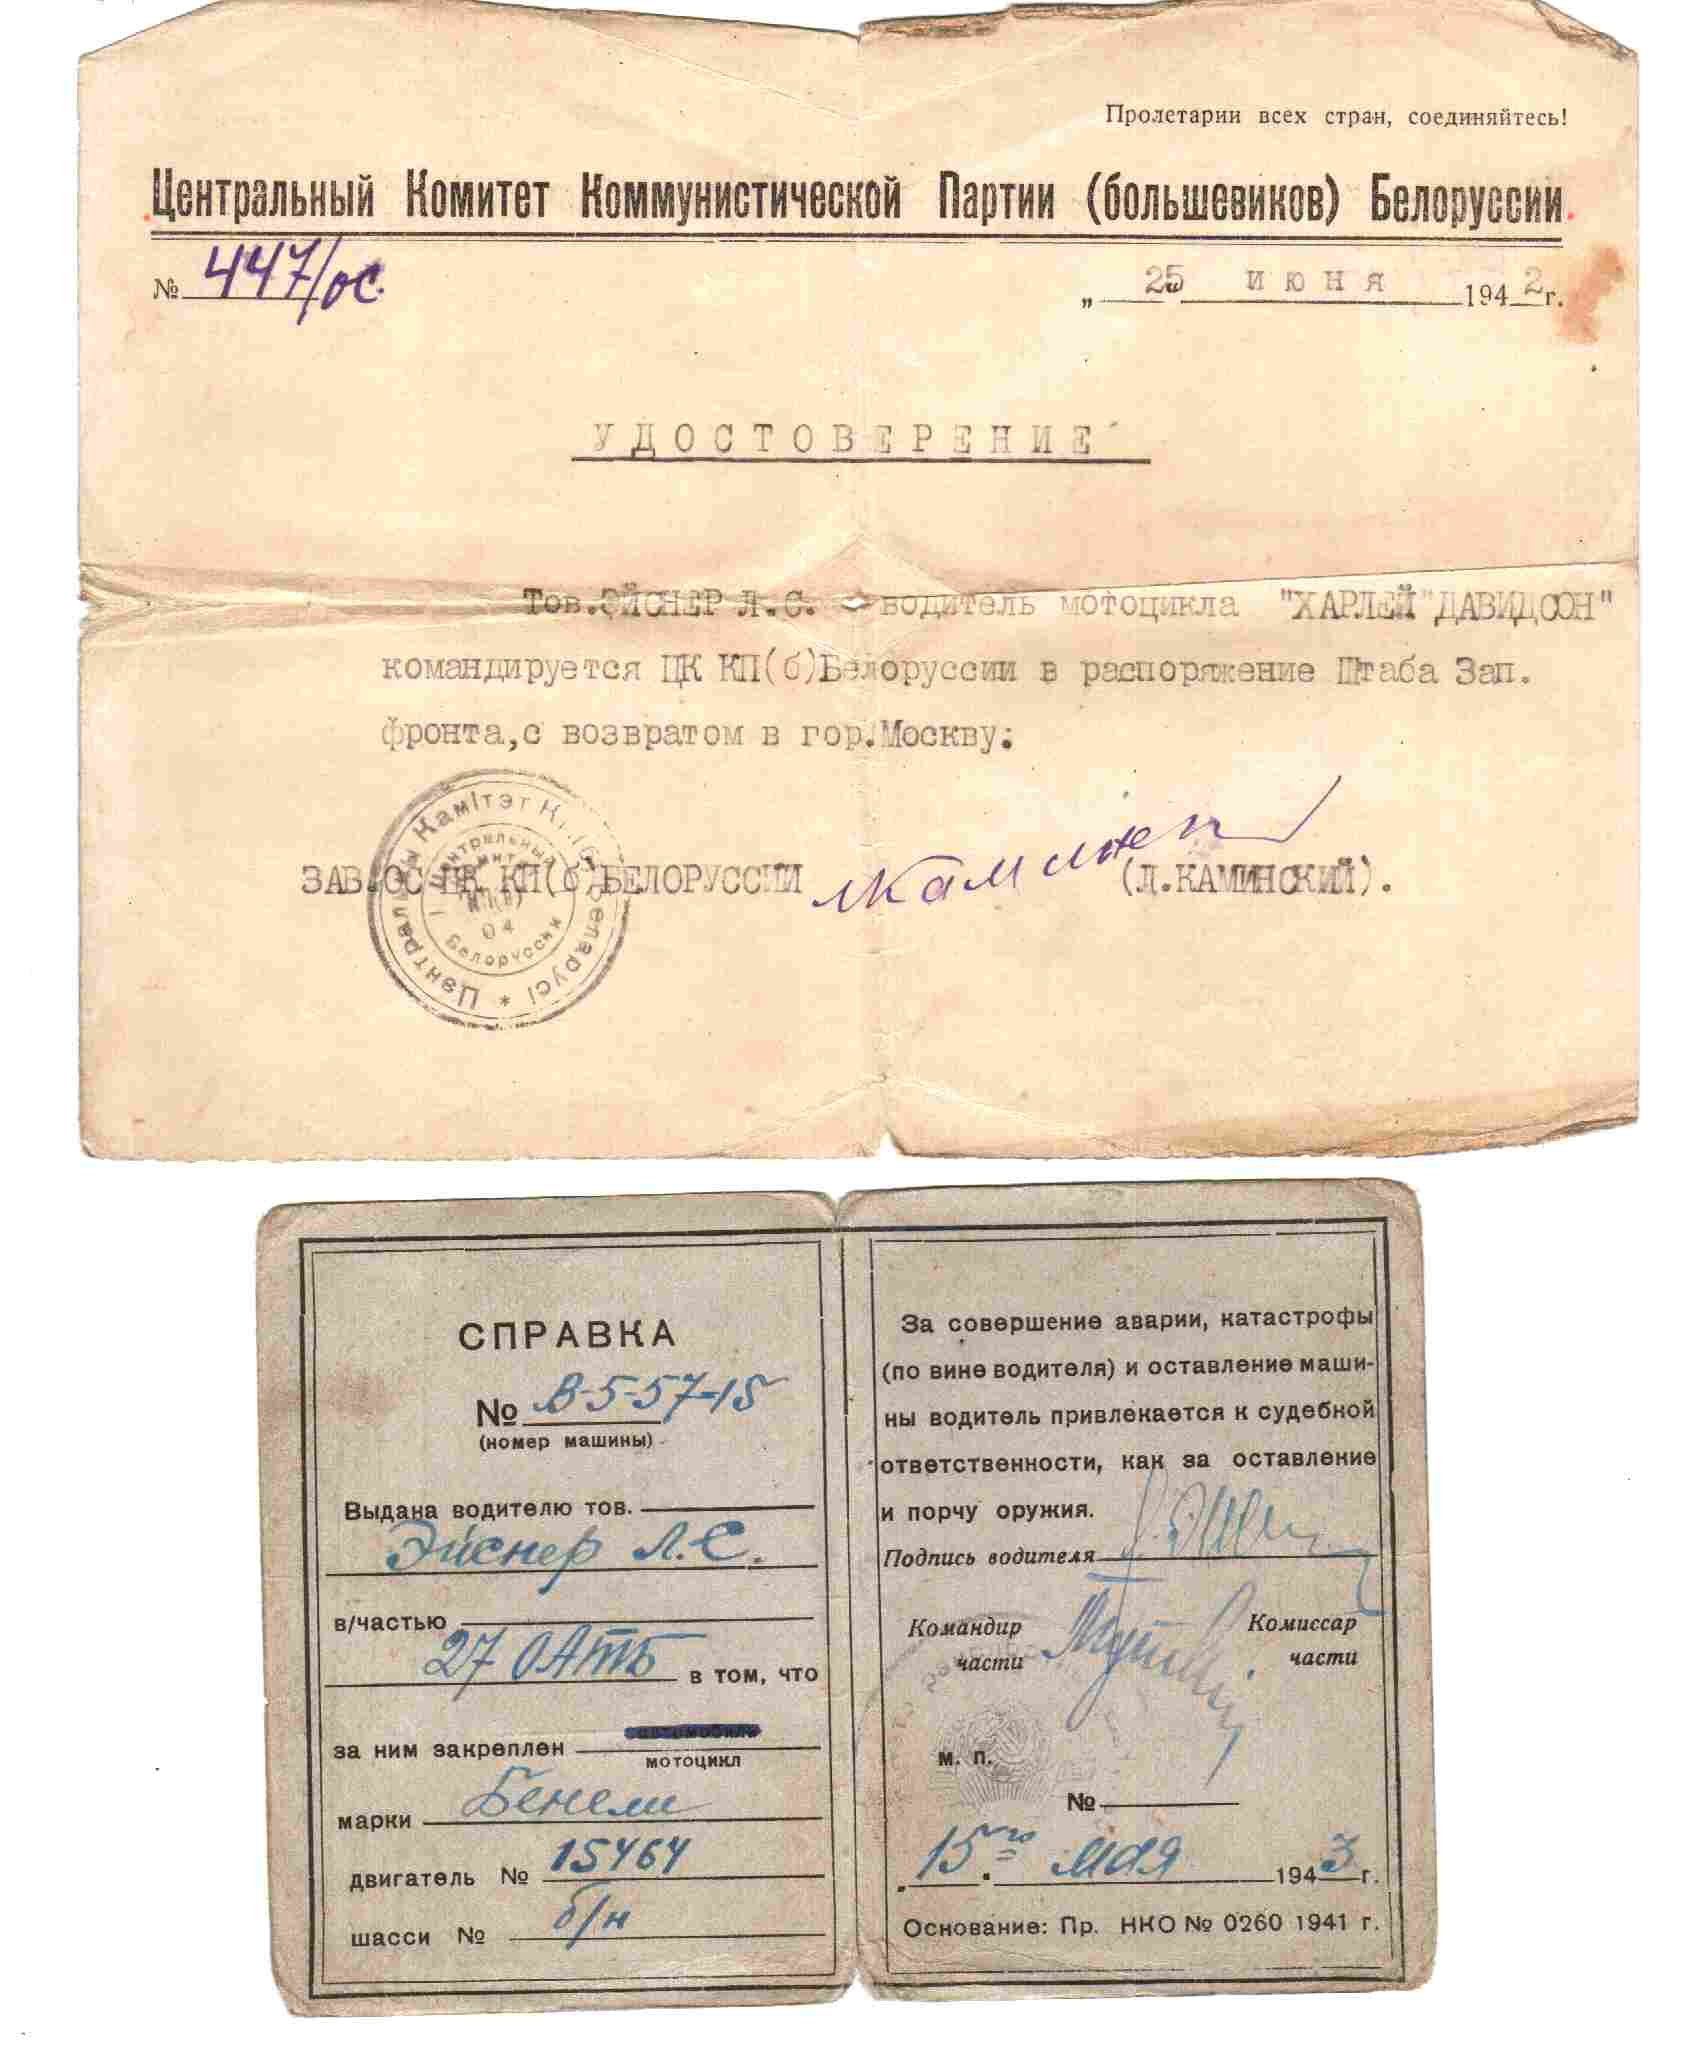 Пролетарии всех стран, соединяйтесь!
Центральный Комитет Коммунистической Партии (большевиков) Белоруссии
№ 447/ос.
„ 25 июня 1942 г.
УДОСТОВЕРЕНИЕ
Тов.ЭЙСНЕР Л.С. - водитель мотоцикла "ХАРЛЕЙ"ДАВИДСОН"
командируется ЦК КП(б)Белоруссии в распоряжение Штаба Зап.
фронта,с возвратом в гор.Москву.
ЗАВ.ОС ЦК КП(б)БЕЛОРУССИИ (Л.КАМИНСКИЙ).
Цэнтральны Камітэт КП(б) Беларусі *
Центральный Комит КП(б) Белоруссии
04
СПРАВКА
№ В-5-57-15
(номер машины)
Выдана водителю тов.
Эйснер Л.С.
в/частью
27 ОАТБ в том, что
за ним закреплен автомобиль
мотоцикл
марки Бенели
двигатель № 15464
шасси № б/н
За совершение аварии, катастрофы
(по вине водителя) и оставление маши-
ны водитель привлекается к судебной
ответственности, как за оставление
и порчу оружия.
Подпись водителя
Командир части
Комиссар части
м. п.
№
„15го" мая 1943 г.
Основание: Пр. НКО № 0260 1941 г.